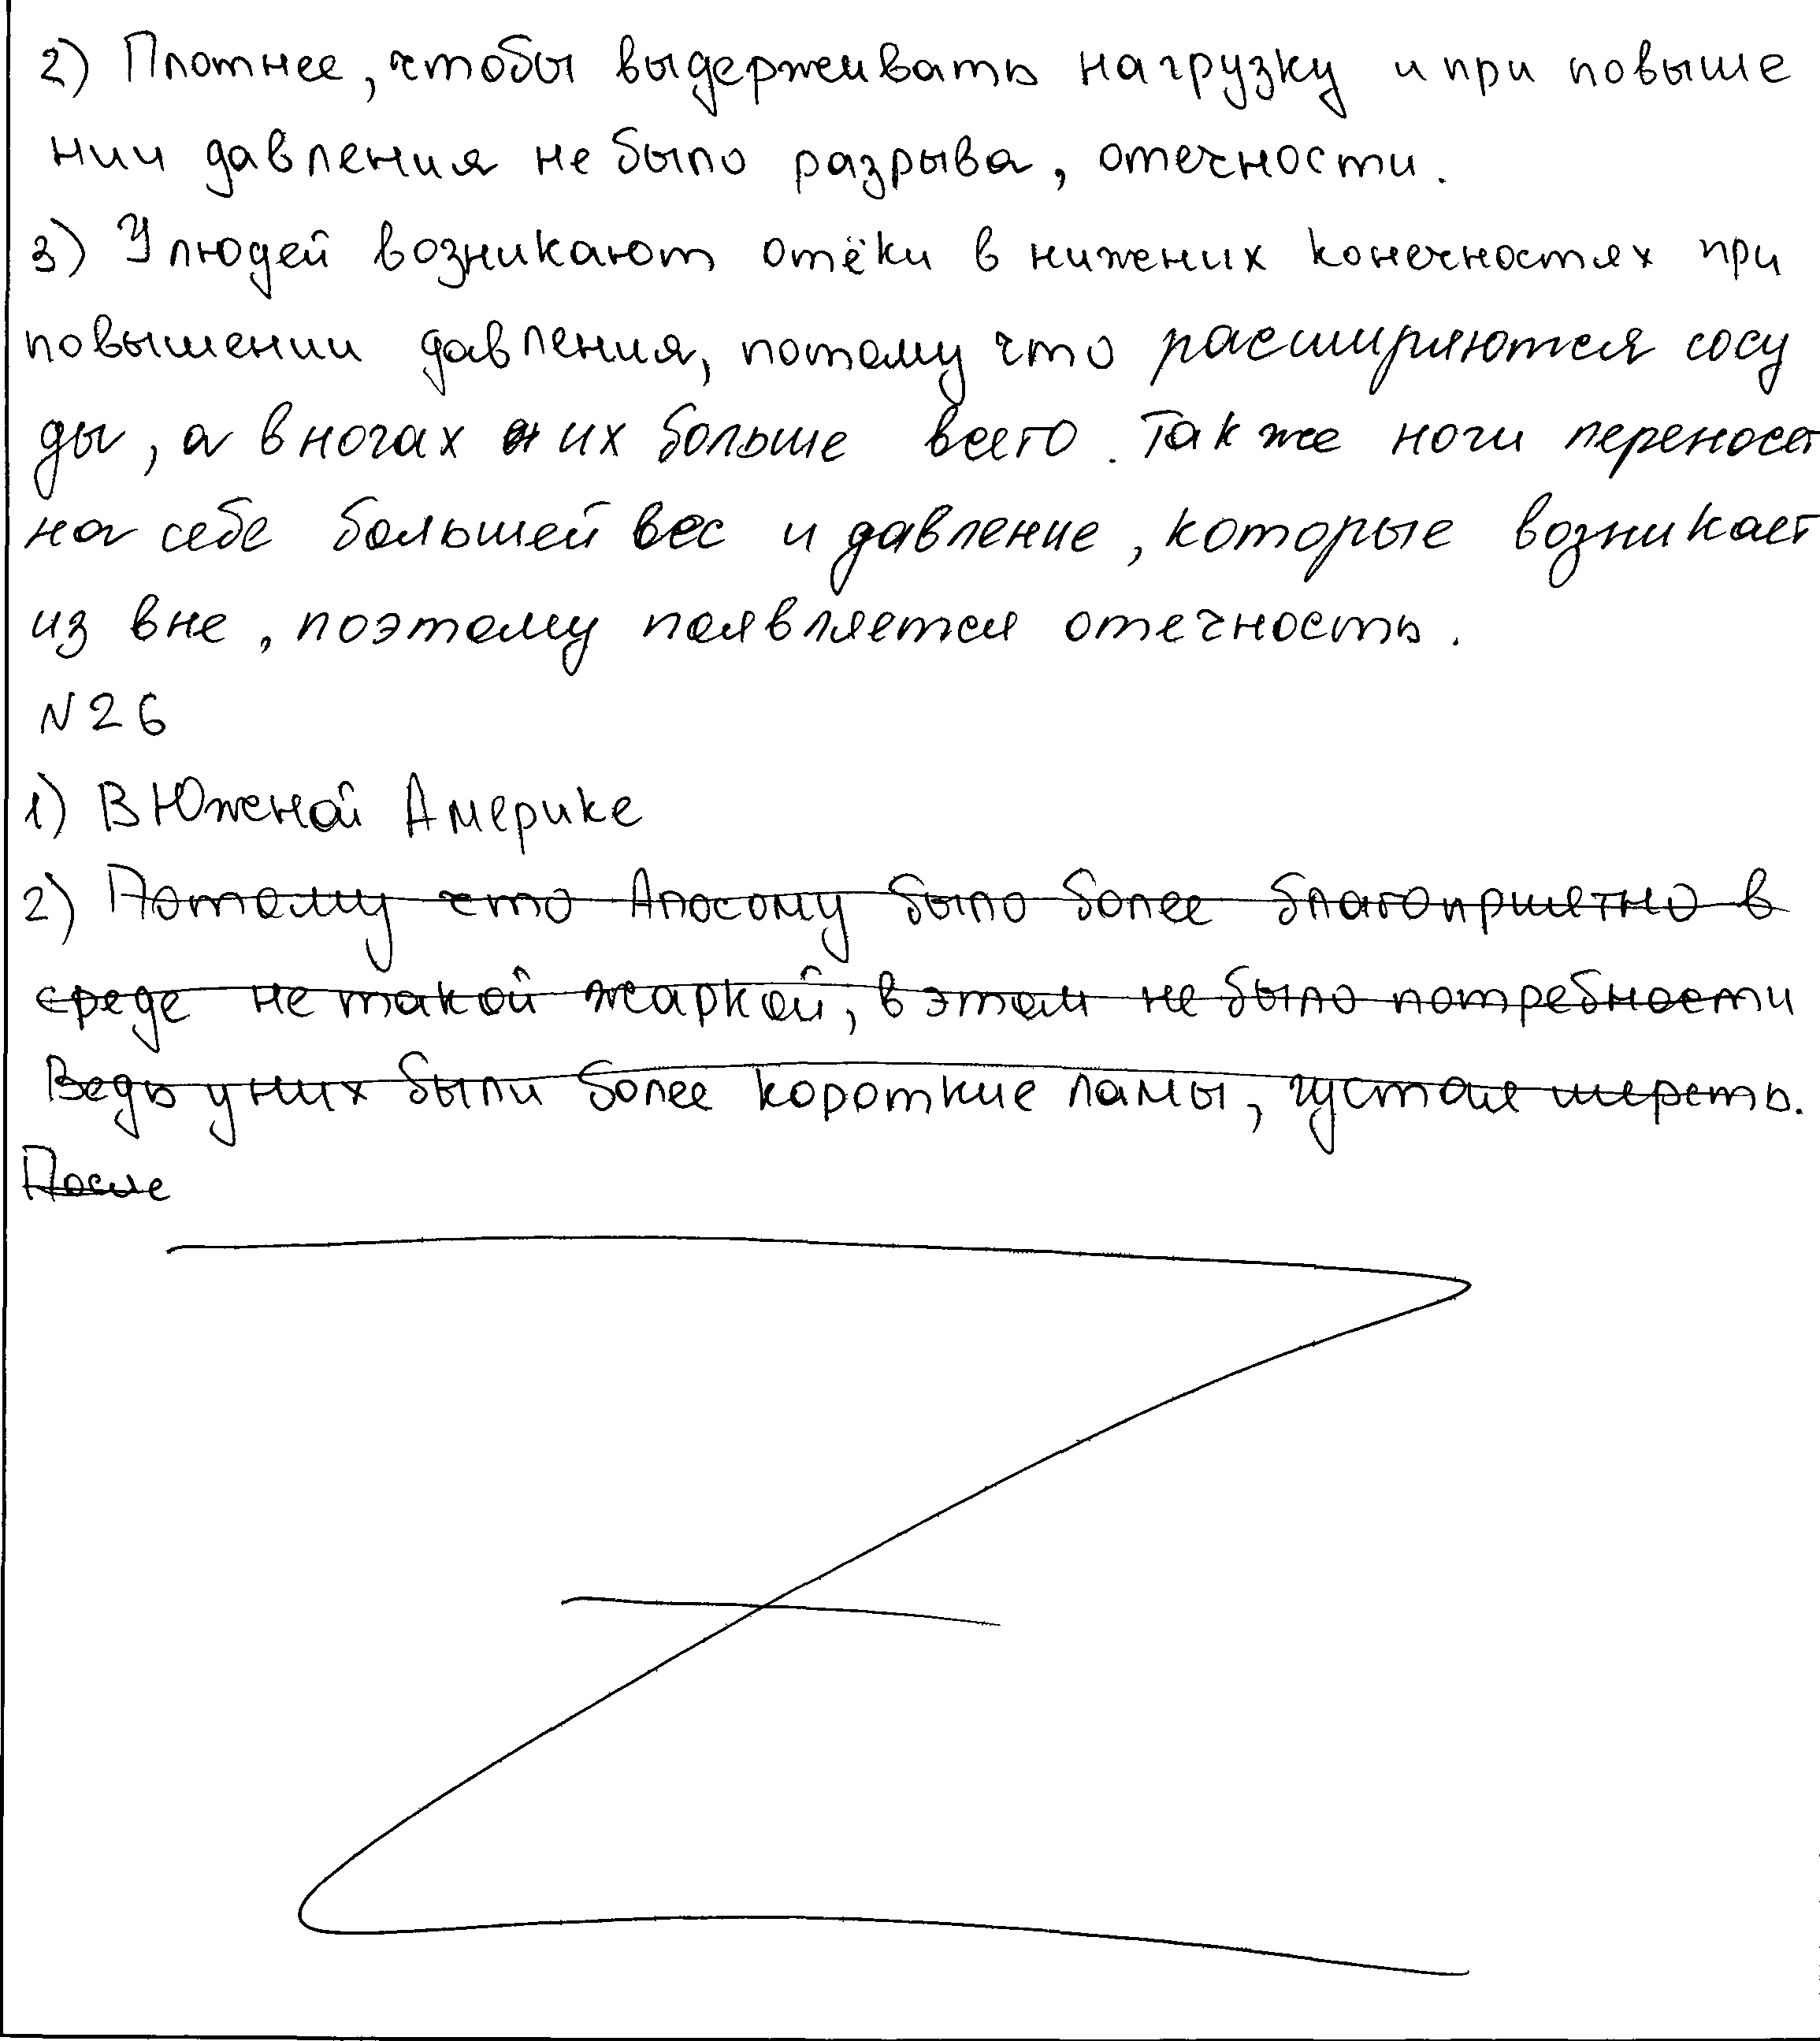 2) Плотнее, чтобы выдерживать нагрузку и при повыше
нии давления не было разрыва, отечности.
3) У людей возникают отёки в нижних конечностях при
повышении давления, потому что расширяются сосу
ды, а в ногах их больше всего. Также ноги переносят
на себе большей вес и давление, которые возникает
из вне, поэтому появляется отечность.
N26
1) В Южной Америке
2) Потому что Апосому было более благоприятно в
среде не такой жаркой, в этом не было потребности
Ведь у них были более короткие лапы, густая шерсть.
После